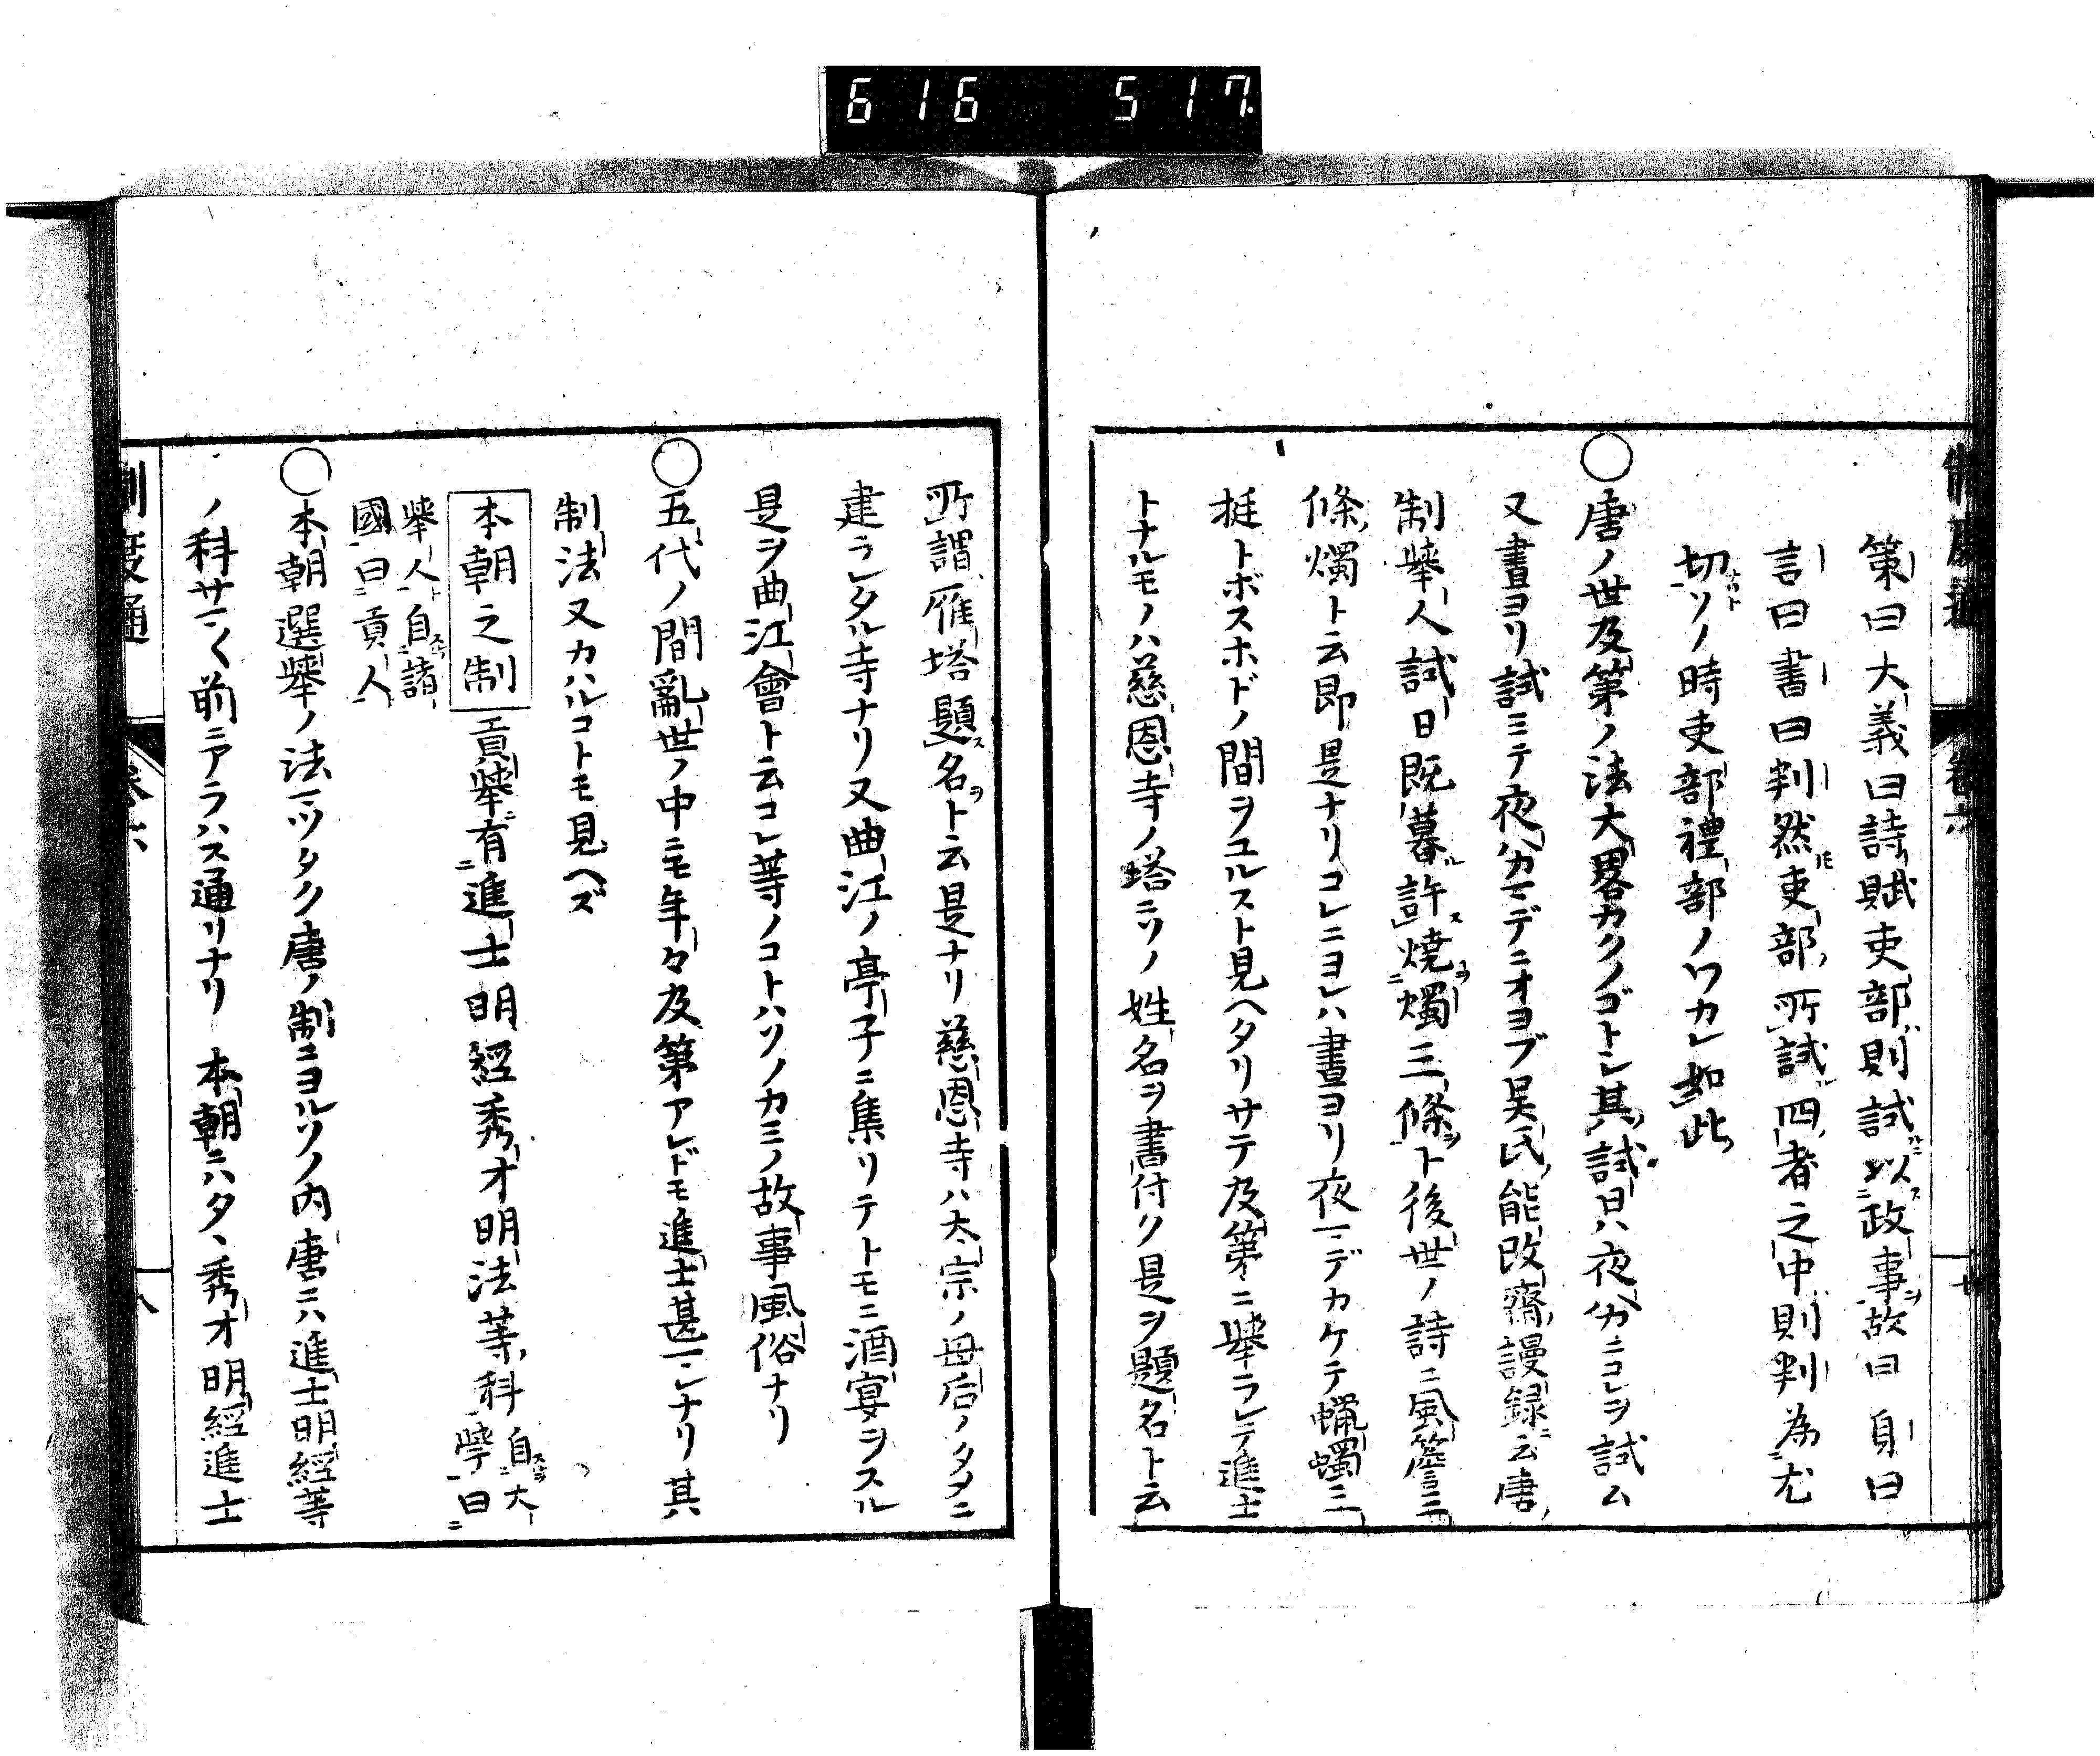 616 517
制度通 卷六 廿
第曰大義曰詩賦吏部則試以政事故曰身曰
言曰書曰判然吏部所試四者之中則判為尤
切ソノ時吏部禮部ノワカレ如此
○唐ノ世及第ノ法大畧カクノゴトシ其試日ハ夜分ニコレヲ試ム
又晝ヨリ試ミテ夜分マデニオヨブ吴氏能改齋謾録云唐
制舉人試日既暮許燒燭三條ト後世ノ詩ニ風簷三
條燭ト云即是ナリコレニヨレハ晝ヨリ夜マデカケテ蠟燭三
挺トボスホドノ間ヲユルスト見ヘタリサテ及第ニ舉ラレテ進士
トナルモノハ慈恩寺ノ塔ニソノ姓名ヲ書付ク是ヲ題名ト云
所謂雁塔題名ト云是ナリ慈恩寺ハ太宗ノ母后ノタメニ
建ラレタル寺ナリ又曲江ノ亭子ニ集リテトモニ酒宴ヲスル
是ヲ曲江會ト云コレ等ノコトハソノカミノ故事風俗ナリ
○五代ノ間亂世ノ中ニモ年々及第アレドモ進士甚マレナリ其
制法又カハルコトモ見ヘズ
本朝之制 貢舉有進士明經秀才明法等科 自大學曰
舉人自諸
國曰貢人
○本朝選舉ノ法マツタク唐ノ制ニヨルソノ内唐ニハ進士明經等
ノ科サマ〱前ニアラハス通リナリ 本朝ニハタヽ秀才明經進士
制度通 卷六 八